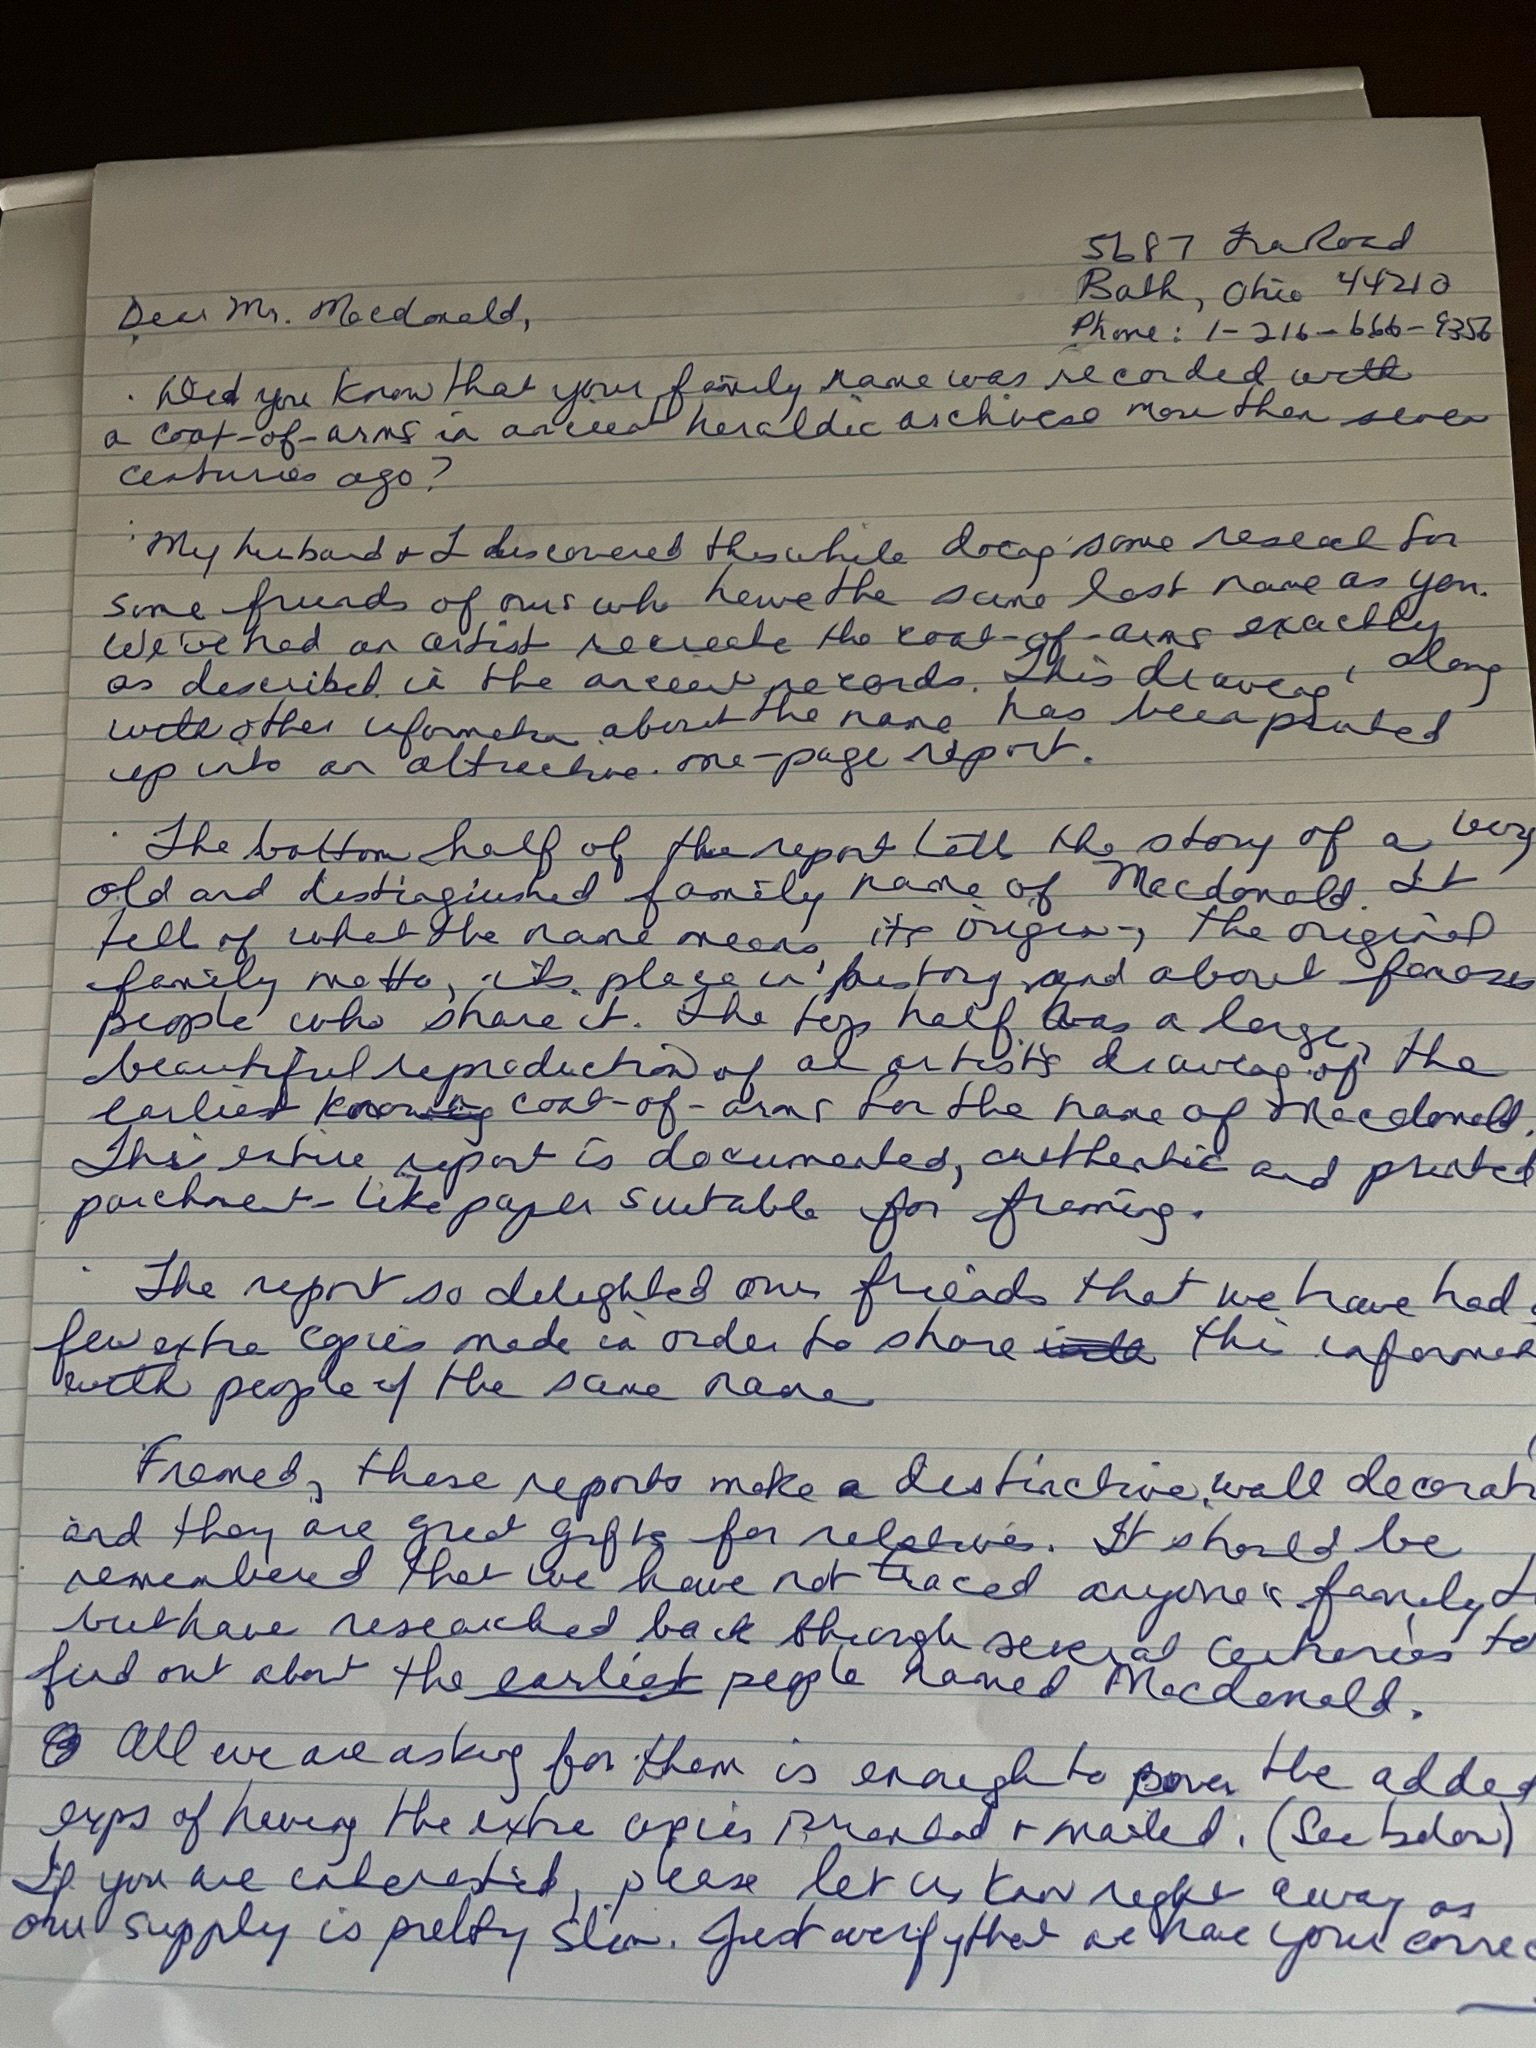 5687 Ira Road
Bath, Ohio 44210
Phone: 1-216-666-9356
Dear Mr. Macdonald,
Did you know that your family name was recorded with
a coat-of-arms in ancient heraldic archives more than seven
centuries ago?
My husband + I discovered this while doing some research for
some friends of ours who have the same last name as you.
We've had an artist recreate the coat-of-arms exactly
as described in the ancient records. This drawing, along
with other information about the name has been printed
up into an attractive one-page report.
The bottom half of the report tells the story of a very
old and distinguished family name of Macdonald. It
tell of what the name means, its origin, the original
family motto, its place in history and about famous
people who share it. The top half has a large,
beautiful reproduction of an artist's drawing of the
earliest known coat-of-arms for the name of Macdonald.
This entire report is documented, authentic and printed
parchment-like paper suitable for framing.
The report so delighted our friends that we have had
few extra copies made in order to share this informa
with people of the same name
Framed, these reports make a distinctive wall decorati
and they are great gifts for relatives. It should be
remembered that we have not traced anyone's family
but have researched back through several centuries to
find out about the earliest people named Macdonald.
All we are asking for them is enough to cover the added
exps of having the extra copies printed + mailed. (See below)
If you are interested, please let us know right away as
our supply is pretty slim. Just verify that we have your correc